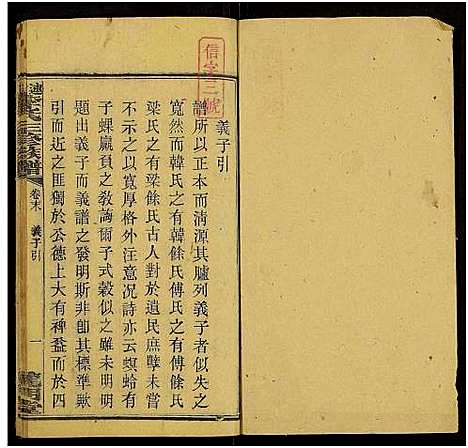 信字三號
義子引
譜所以正本而清源其臚列義子者似失之
寬然而韓氏之有韓餘氏傅氏之有傅餘氏
梁氏之有梁餘氏古人對於遺民庶孽未嘗
不示之以寬厚格外注意况詩亦云螟蛉有
子蜾蠃負之教誨爾子式穀似之雖未明明
題出義子而義譜之發明斯非卽其標準歟
引而近之匪獨於公德上大有裨益而於四
氏三修族譜
卷末
義子引
一